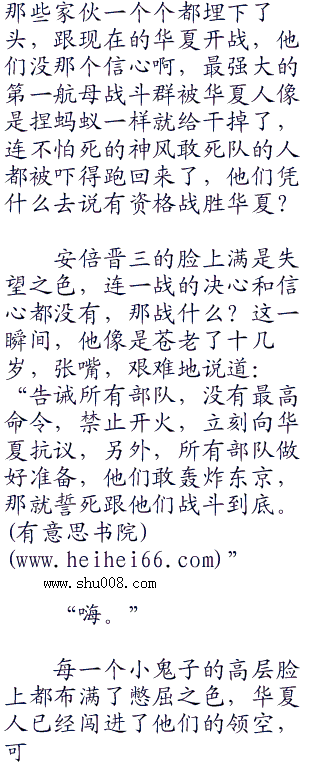 那些家伙一个个都埋下了
头，跟现在的华夏开战，他
们没那个信心啊，最强大的
第一航母战斗群被华夏人像
是捏蚂蚁一样就给干掉了，
连不怕死的神风敢死队的人
都被吓得跑回来了，他们凭
什么去说有资格战胜华夏？
安倍晋三的脸上满是失
望之色，连一战的决心和信
心都没有，那战什么？这一
瞬间，他像是苍老了十几
岁，张嘴，艰难地说道：
“告诫所有部队，没有最高
命令，禁止开火，立刻向华
夏抗议，另外，所有部队做
好准备，他们敢轰炸东京，
那就誓死跟他们战斗到底。
(有意思书院)
(www.heihei66.com)”
www.shu008.com
“嗨。”
每一个小鬼子的高层脸
上都布满了憋屈之色，华夏
人已经闯进了他们的领空，
可